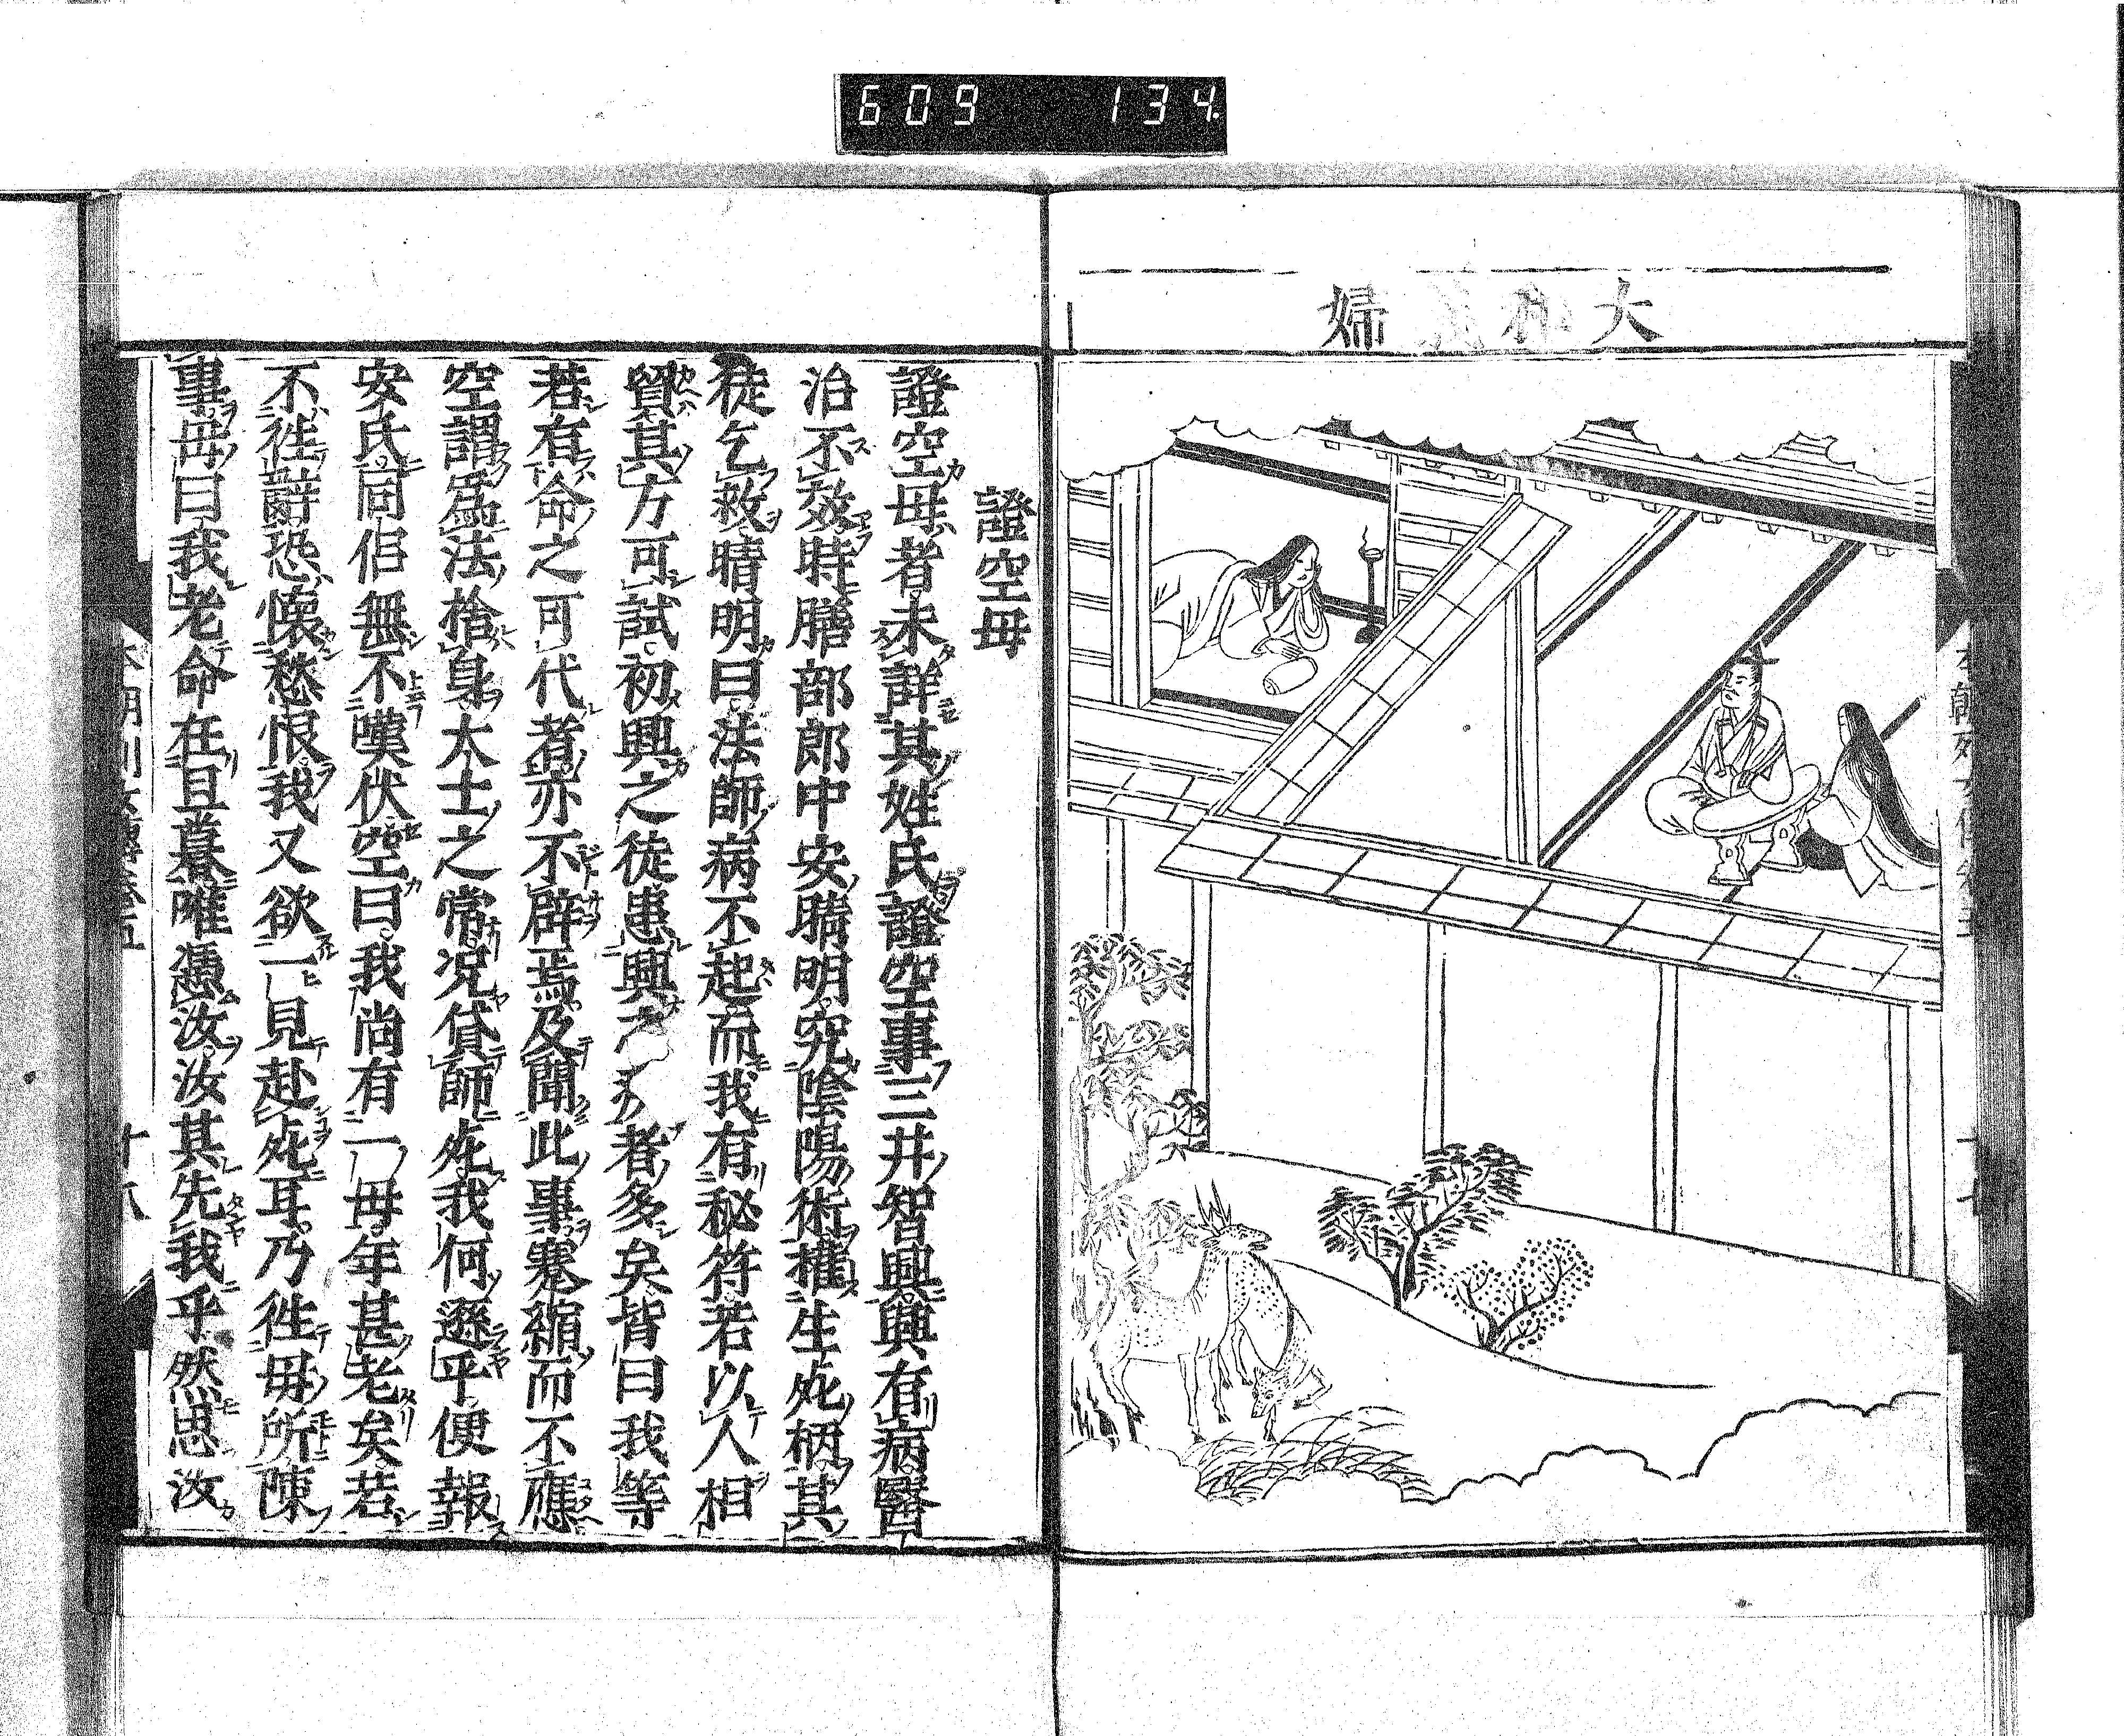 609 134
大和 婦
證空母
證空母者未詳其姓氏證空事三井智興興有病醫
治不效時膳部郎中安晴明究陰陽術權生死柄其
徒乞救晴明曰法師病不起而我有秘符若以人相
貿其方可試初興之徒患興之 者多矣皆曰我等
若有命之可代者亦不辟焉及聞此事蹇縮而不應
空謂爲法捨身大士之常况貸師死我何遜乎便報
安氏同侶無不嘆伏空曰我尚有一母年甚老矣若
不徃辭恐懐愁恨我又欲一見赴死耳乃徃母所陳
事母曰我老命在旦暮唯憑汝汝其先我乎然思汝
本朝列女傳卷五 十八